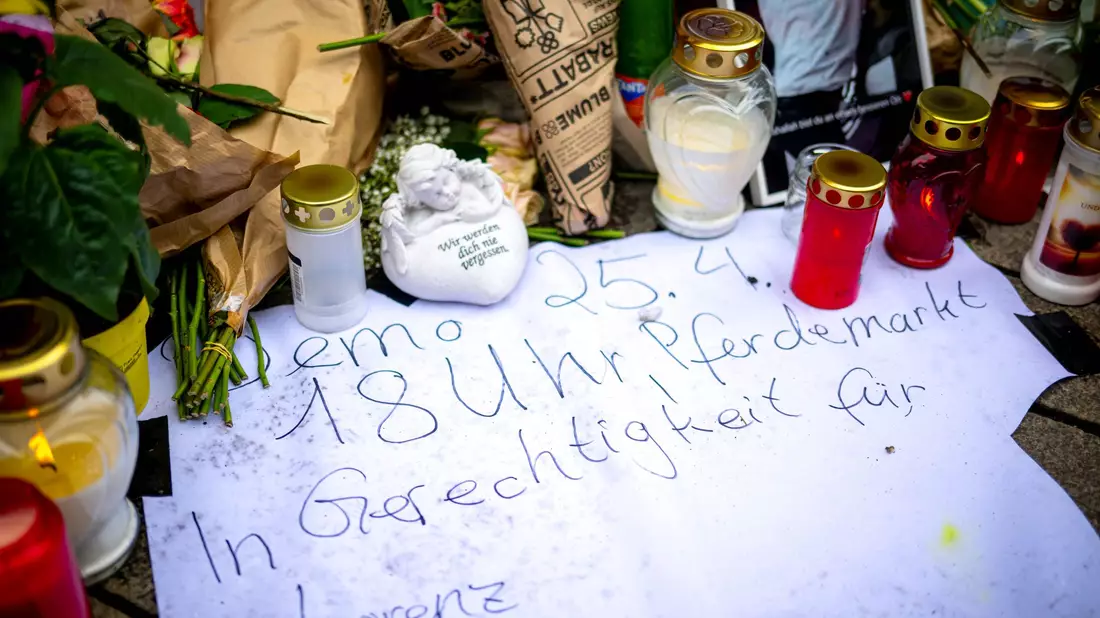 RABATT*
BLUME
Wir werden
dich nie
vergessen.
Demo 25.4.
18 Uhr, Pferdemarkt
In Gerechtigkeit für,
Lorenz